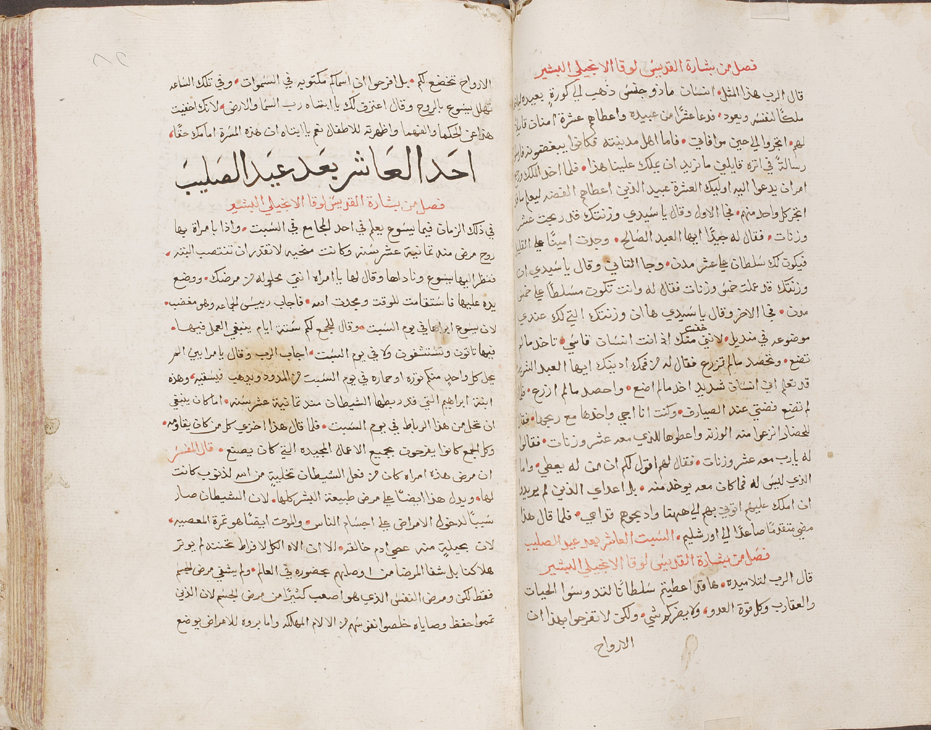 فصل من بشارة القديس لوقا الانجيلي البشير
قال الرب هذا المثل انسان ماذو جنس ذهب الي كورة بعيده
ملكا لنفسه ويعود فدعا عشرا من عبيده واعطاهم عشرة امنان
لهم اتجروا الي حين موافاتي فاما اهل مدينته فكانوا يبغضونه
رسالة في اثره قايلين مانريد ان يملك علينا هذا فلما اخد الملك
امر ان يدعوا اليه اوليك العشرة عبيد الذين اعطاهم الفضه ليعلم
اتجر كل واحد منهم فجا الاول وقال ياسيدي وزنتك قد ربحت عشر
وزنات فقال له جيدا ايها العبد الصالح وجدت امينا علي القليل
فيكون لك سلطان علي عشر مدن وجا التاني وقال ياسيدي ان
وزنتك قد عملت خمس وزنات فقال له وانت تكون مسلطا علي خمس
مدن فجا الاخر وقال ياسيدي ها ان وزنتك التي لك عندي
موضوعه في منديل لانني خفت منك اذ انت انسان قاسي تاخد مالم
تضع وتحصد مالم تزرع فقال له من فمك ادينك ايها العبد الشرير
قد تعلم اني انسان شديد اخد مالم اضع واحصد مالم ازرع
لم تضع فضتي عند الصيارف وكنت انا اجي واخدها مع ربحها
للحضار انزعوا منه الوزنه واعطوها للذي معه عشر وزنات فقالوا
له يارب معه عشر وزنات فقال لهم اقول لكم ان من له يعطي واما
الذي ليس له فما كان معه يوخد منه بل اعداي الذين لم يريدوا
ان املك عليهم اتوني بهم الي ههنا واديحوهم قدامي فلما قال هذا
مضي متقدما صاعدا الي اورشليم السبت العاشر بعد عيد الصليب
فصل من بشارة القديس لوقا الانجيلي البشير
قال الرب لتلاميذه هاقد اعطيتم سلطانا لتدوسوا الحيات
والعقارب وكل قوة العدو ولايضركم شي ولكن لاتفرحوا بهذا ان
الارواح
الارواح تخضع لكم بل افرحوا ان اسماكم مكتوبه في السموات وفي تلك الساعه
تهلل يسوع بالروح وقال اعترف لك يا ابتاه رب السما والارض لانك اخفيت
هذا عن الحكما والفهما واظهرته للاطفال نعم يا ابتاه ان هده المسرة امامك حقا
احد العاشر بعد عيد الصليب
فصل من بشارة القديس لوقا الانجيلي البشير
في ذلك الزمان فيما يسوع يعلم في احد المجامع في السبت واذا بامراة بها
روح مرض مند تمانية عشر سنه وكانت منحنيه لاتقدر ان تنتصب البته
فنظر اليها يسوع وناداها وقال لها يا امراه انتي محلوله من مرضك ووضع
يده عليها فاستقامت للوقت ومجدت الله فاجاب رييس الجماعه وهو مغضب
لان يسوع ابراها في يوم السبت وقال للجمع لكم ستة ايام ينبغي العمل فيها
فيها تاتون وتستشفون ولا في يوم السبت اجاب الرب وقال يامرايي
يحل كل واحد منكم توره او حماره في يوم السبت من المدود ويدهب فيسقيه وهده
ابنة ابراهيم التي قد ربطها الشيطان مند تمانية عشر سنه اما كان ينبغي
ان تحل من هذا الرباط في يوم السبت فلما قال هذا اخزي كل من كان يقاومه
وكل الجمع كانوا يفرحون بجميع الاعمال المجيده التي كان يصنع قال المفسر
ان مرض هده امراه كان من فعل الشيطان بتخلية من الله لدنوب كانت
لها ويدل هذا ايضا علي مرض طبيعة البشر كلها لان الشيطان صار
سببا لدخول الامراض علي اجسام الناس والموت ايضا هو تمرة المعصيه
لان بحيلة منه عصي ادم خالقه الا ان الاه الكل لافراط تحننه لم يوتر
هلاكنا بل شفا المرضا من اوصابهم بحضوره في العالم ولم يشفي مرض الجسم
فقط لكن ومرض النفس الذي هو اصعب كثيرا من مرض الجسم لان الذين
تمموا حفظ وصاياه خلصوا نفوسهم من الالام المهلكه واما بروه للامراض بوضع